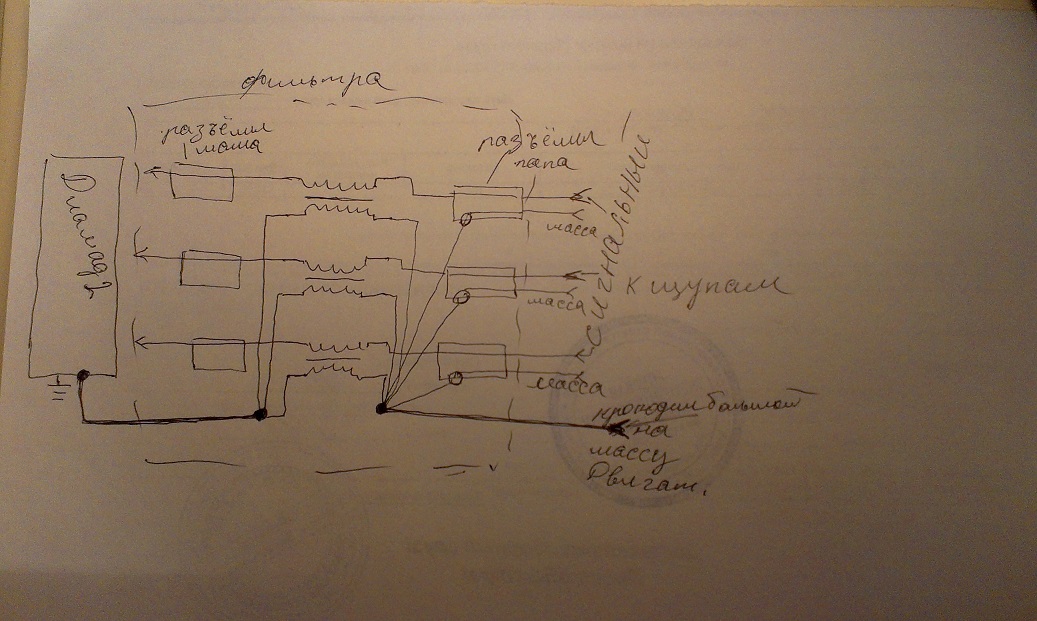 фильтра
разъёмы
мама
разъёмы
папа
сигнальный
масса
к щупам
масса
масса
крокодил большой
на
массу
Двигат.